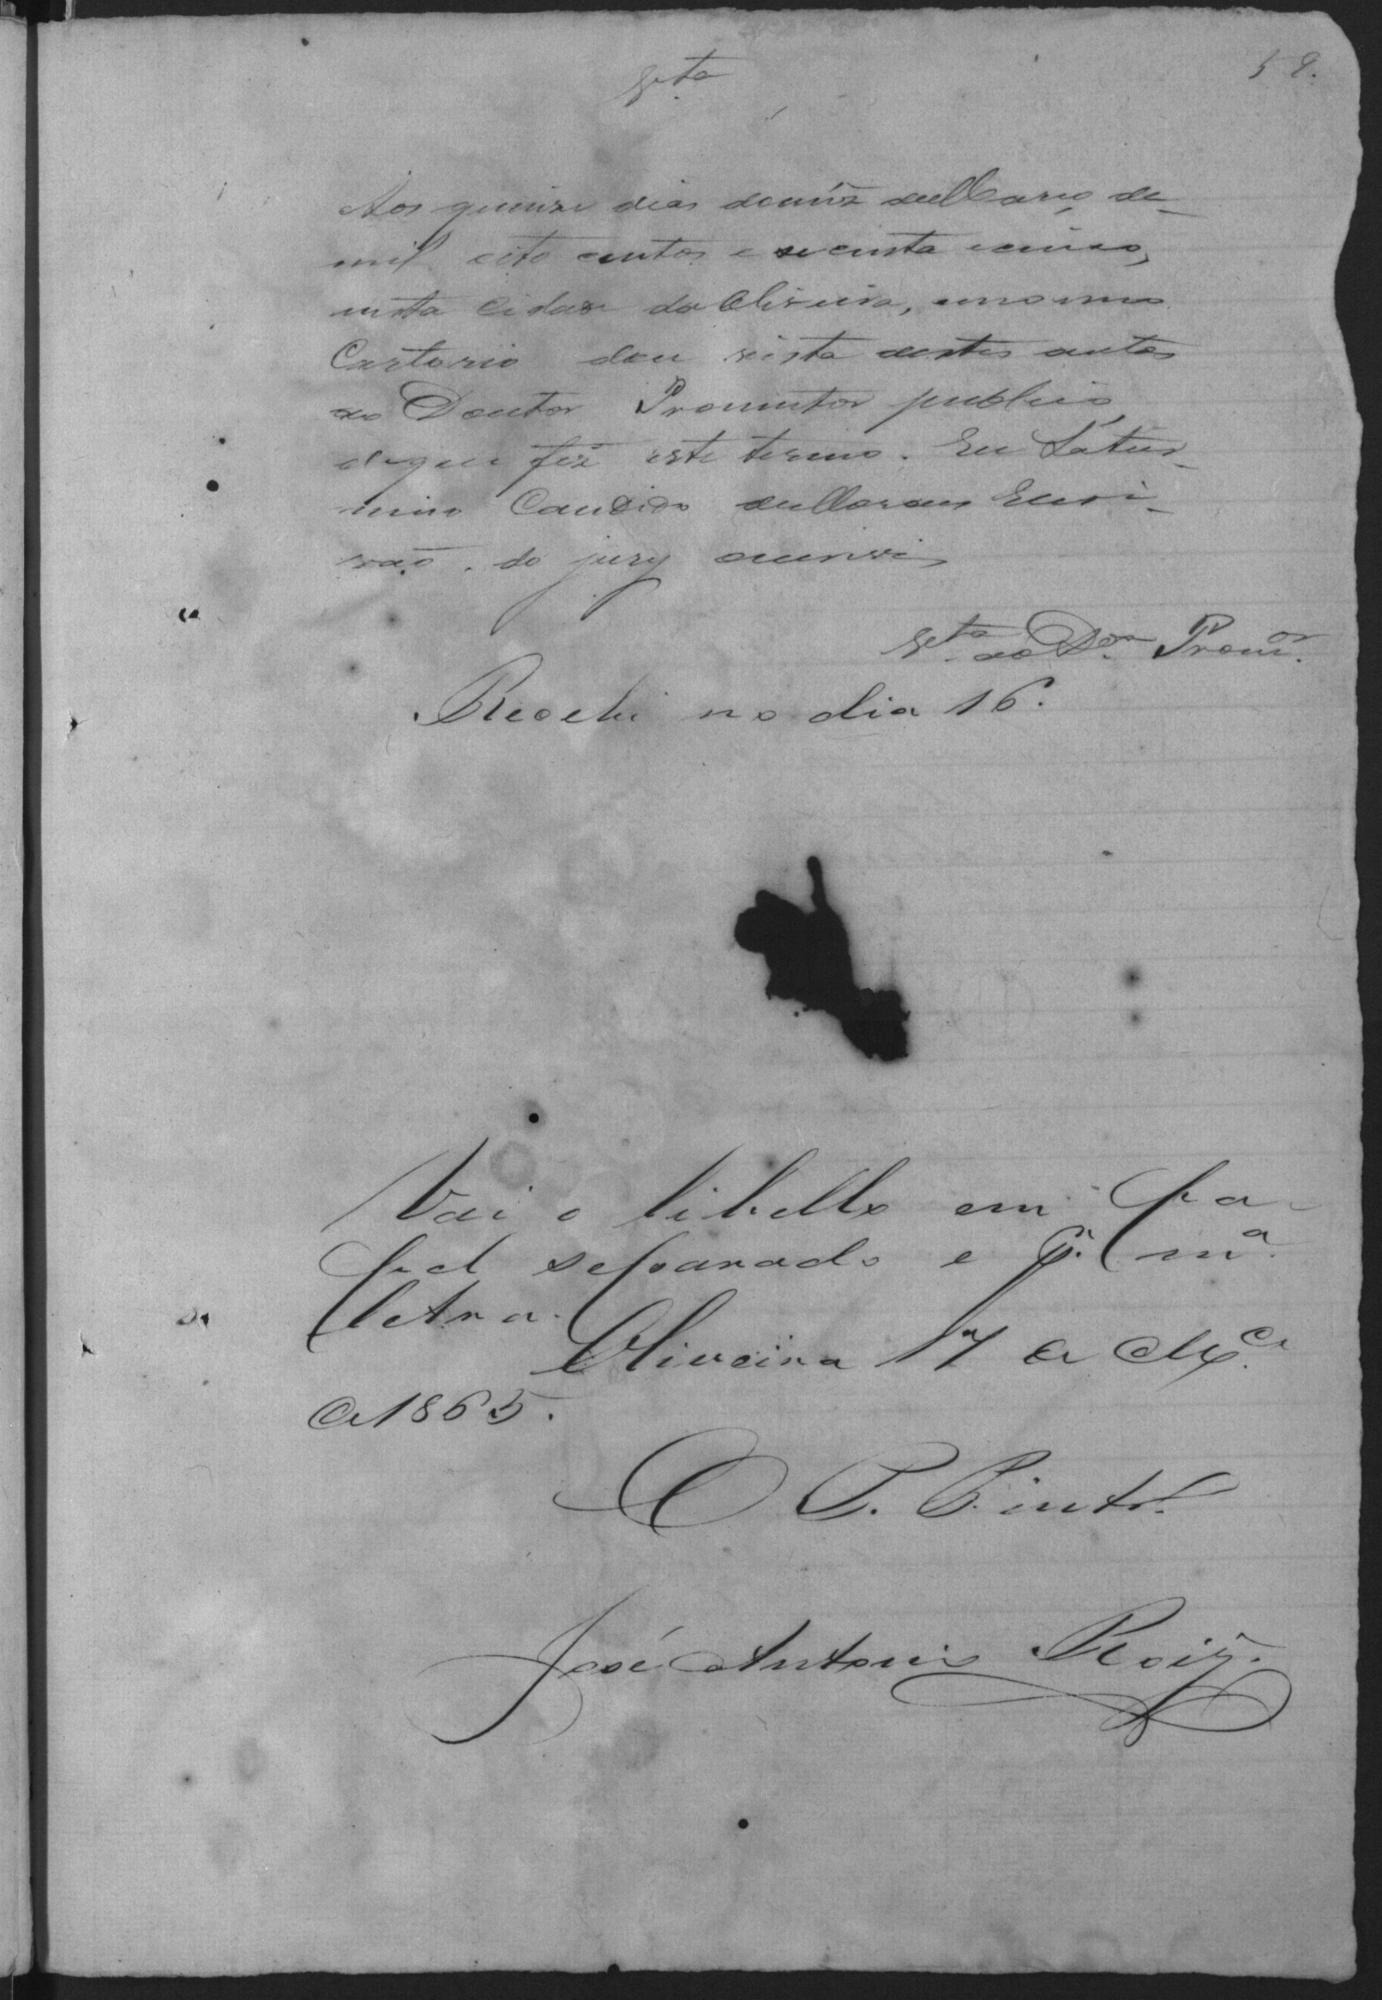 V.ta
58.
Aos quinze dias do mês de Março de
mil oito centos e secenta e cinco,
nesta Cidade da Oliveira, em o meo
Cartorio dou vista destes autos
ao Doutor Promutor publico,
de que fez este termo. Eu Satur-
nino Candido de Moraes Escri-
vão do jury escrevi
V.ta ao D.or Prom.or
Recebi no dia 16.
Vai o libello em pa-
pel separado e p.r m.a
letra.
Oliveira 17 de
de 1865.
O P. P. Pinto
José Antonio Roiz.